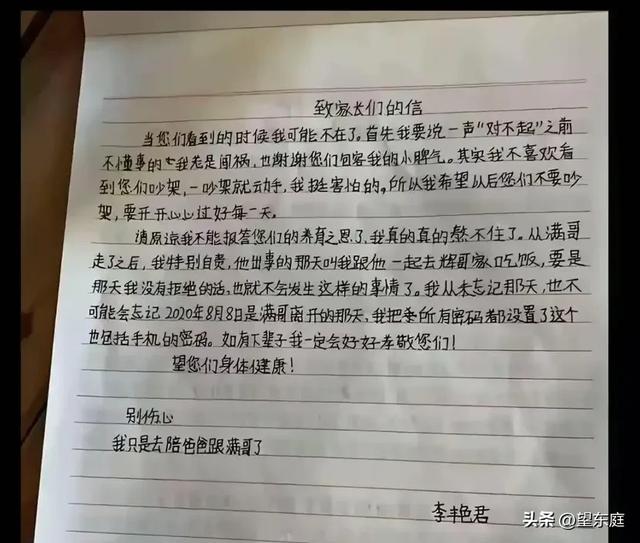 致家长们的信
当您们看到的时候我可能不在了。首先我要说一声“对不起”之前
不懂事的我老是闯祸,也谢谢您们包容我的小脾气。其实我不喜欢看
到您们吵架,一吵架就动手,我挺害怕的。所以我希望以后您们不要吵
架,要开开心心过好每一天。
请原谅我不能报答您们的养育之恩了,我真的真的熬不住了。从满哥
走了之后,我特别自责,他出事的那天叫我跟他一起去辉哥家吃饭,要是
那天我没有拒绝的话,也就不会发生这样的事情了。我从未忘记那天,也不
可能会忘记2020年8月8日是满哥离开的那天,我把所有密码都设置了这个
也包括手机的密码。如有下辈子我一定会好好孝敬您们!
望您们身体健康!
别伤心
我只是去陪爸爸跟满哥了
李艳君
头条 @望东庭